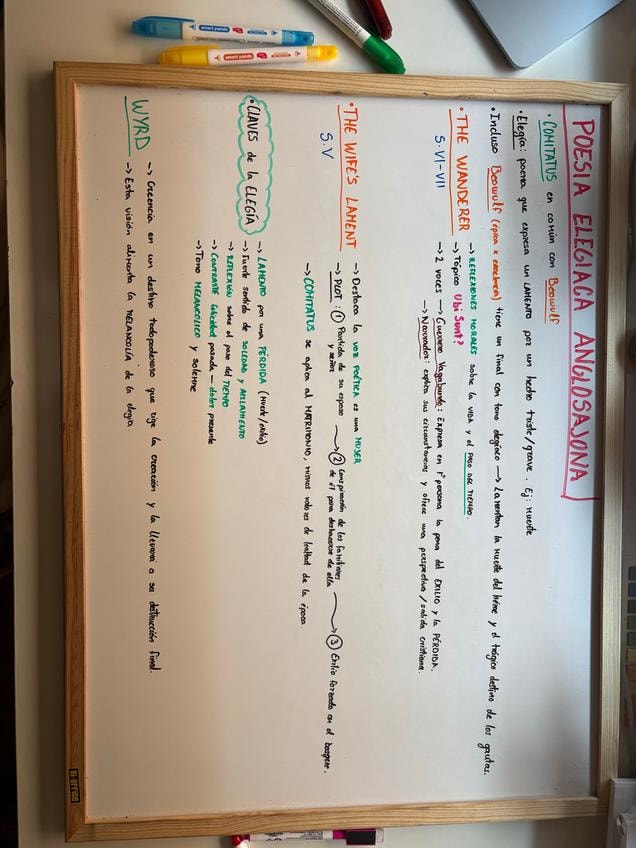 POESIA ELEGIACA ANGLOSAJONA
• COMITATUS en común con Beowulf
• Elegía: poema que expresa un LAMENTO por un hecho triste/grave. Ej: muerte
• Incluso Beowulf (épica x excelencia) tiene un final con tono elegíaco → Lamentan la muerte del héroe y el trágico destino de los gautas.
• THE WANDERER → REFLEXIONES MORALES sobre la VIDA y el PASO DEL TIEMPO.
S. VI-VII → Tópico Ubi Sunt?
→ 2 voces → Guerrero Vagabundo: Expresa en 1ª persona la pena del EXILIO y la PÉRDIDA.
→ Narrador: explica sus circunstancias y ofrece una perspectiva/salida cristiana.
• THE WIFE'S LAMENT → Destaca la VOZ POÉTICA es una MUJER
S. V → PLOT: ① Partida de su esposo y señor → ② Conspiración de los familiares de él para deshacerse de ella → ③ Exilio forzado en el bosque.
→ COMITATUS se aplica al MATRIMONIO, mismos valores de lealtad de la época.
• CLAVES de la ELEGÍA → LAMENTO por una PÉRDIDA (muerte/exilio)
→ Fuerte sentido de SOLEDAD y AISLAMIENTO
→ REFLEXIÓN sobre el paso del TIEMPO
→ CONTRASTE felicidad pasada – dolor presente
→ Tono MELANCÓLICO y solemne
WYRD → Creencia en un destino todopoderoso que rige la creación y la llevará a su destrucción final.
→ Esta visión alimenta la MELANCOLÍA de la elegía.
smart panda
smart panda
BI-OFFICE